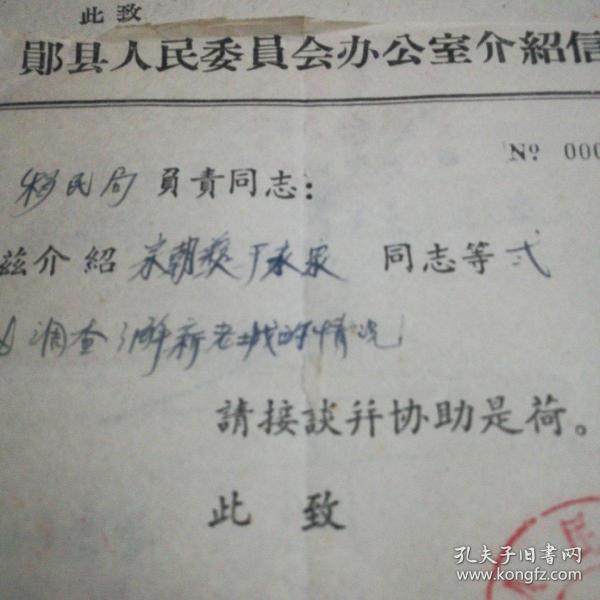 此致
鄖县人民委員会办公室介紹信
№ 000
移民局 負責同志：
兹介紹 宋朝 于永泉 同志等 弍
調查了解新老城的情况
請接談幷协助是荷。
此致
民
孔夫子旧书网
www.kongfz.com